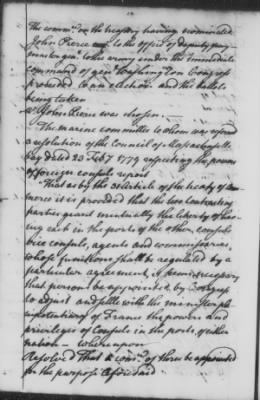 The comme. on the treasury having nominated
John Pierce esqr to the office of deputy pay
master genl. to the army under the immediate
command of genl Washington Congress
proceeded to an election and the ballots
being taken
Mr John Pierce was chosen. —
The marine committee to whom was referred
a resolution of the Council of Massachusetts
bay dated 23 Feby 1779 respecting the powers
of foreign consuls report
That as by the article of the treaty of com
merce it is provided that the two contracting
parties grant mutually the liberty of hav
ing each in the ports of the other, consuls
vice consuls, agents and commissaries,
whose functions shall be regulated by a
particular agreement, it seems necessary
that persons be appointed by Congress
to adjust and settle with the minister ple
nipotentiary of France the powers and
privileges of Consuls in the ports of either
nation — whereupon
Resolved That a comee. of three be appointed
for the purpose aforesaid